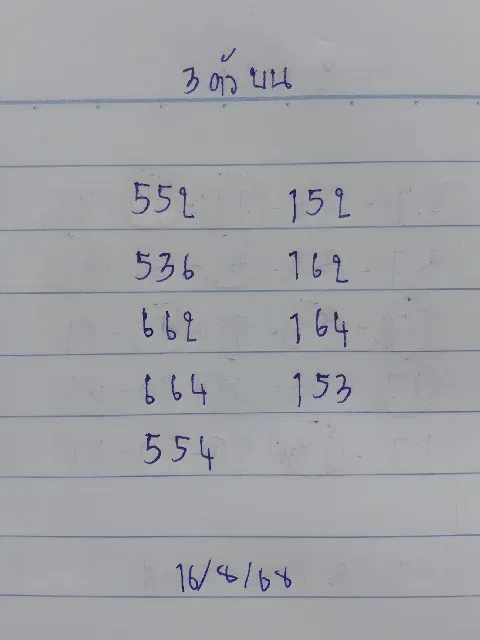 3 ตัว บน
552 152
536 162
662 164
664 153
554
16/8/68